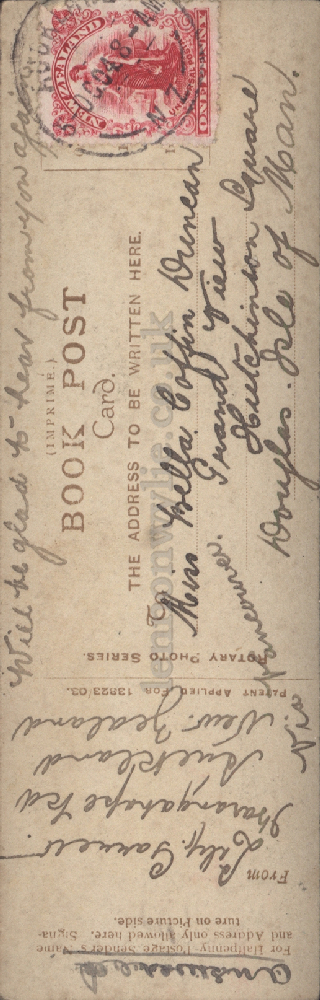 Will be glad to hear from you again
(IMPRIMÉ)
BOOK POST
Card.
THE ADDRESS TO BE WRITTEN HERE.
To
Miss Bella Coffin Duncan
Grand View
Hutchinson Square
Douglas. Isle of Man.
Via Vancouver.
NEW ZEALAND
ONE PENNY
N.Z
ROTARY PHOTO SERIES.
PATENT APPLIED FOR 13823/03.
For Halfpenny Postage Sender's Name
and Address only allowed here. Signa-
ture on Picture side.
From
Lily
Karangahape Rd
Auckland
New Zealand
answered
lentonwylie.co.uk